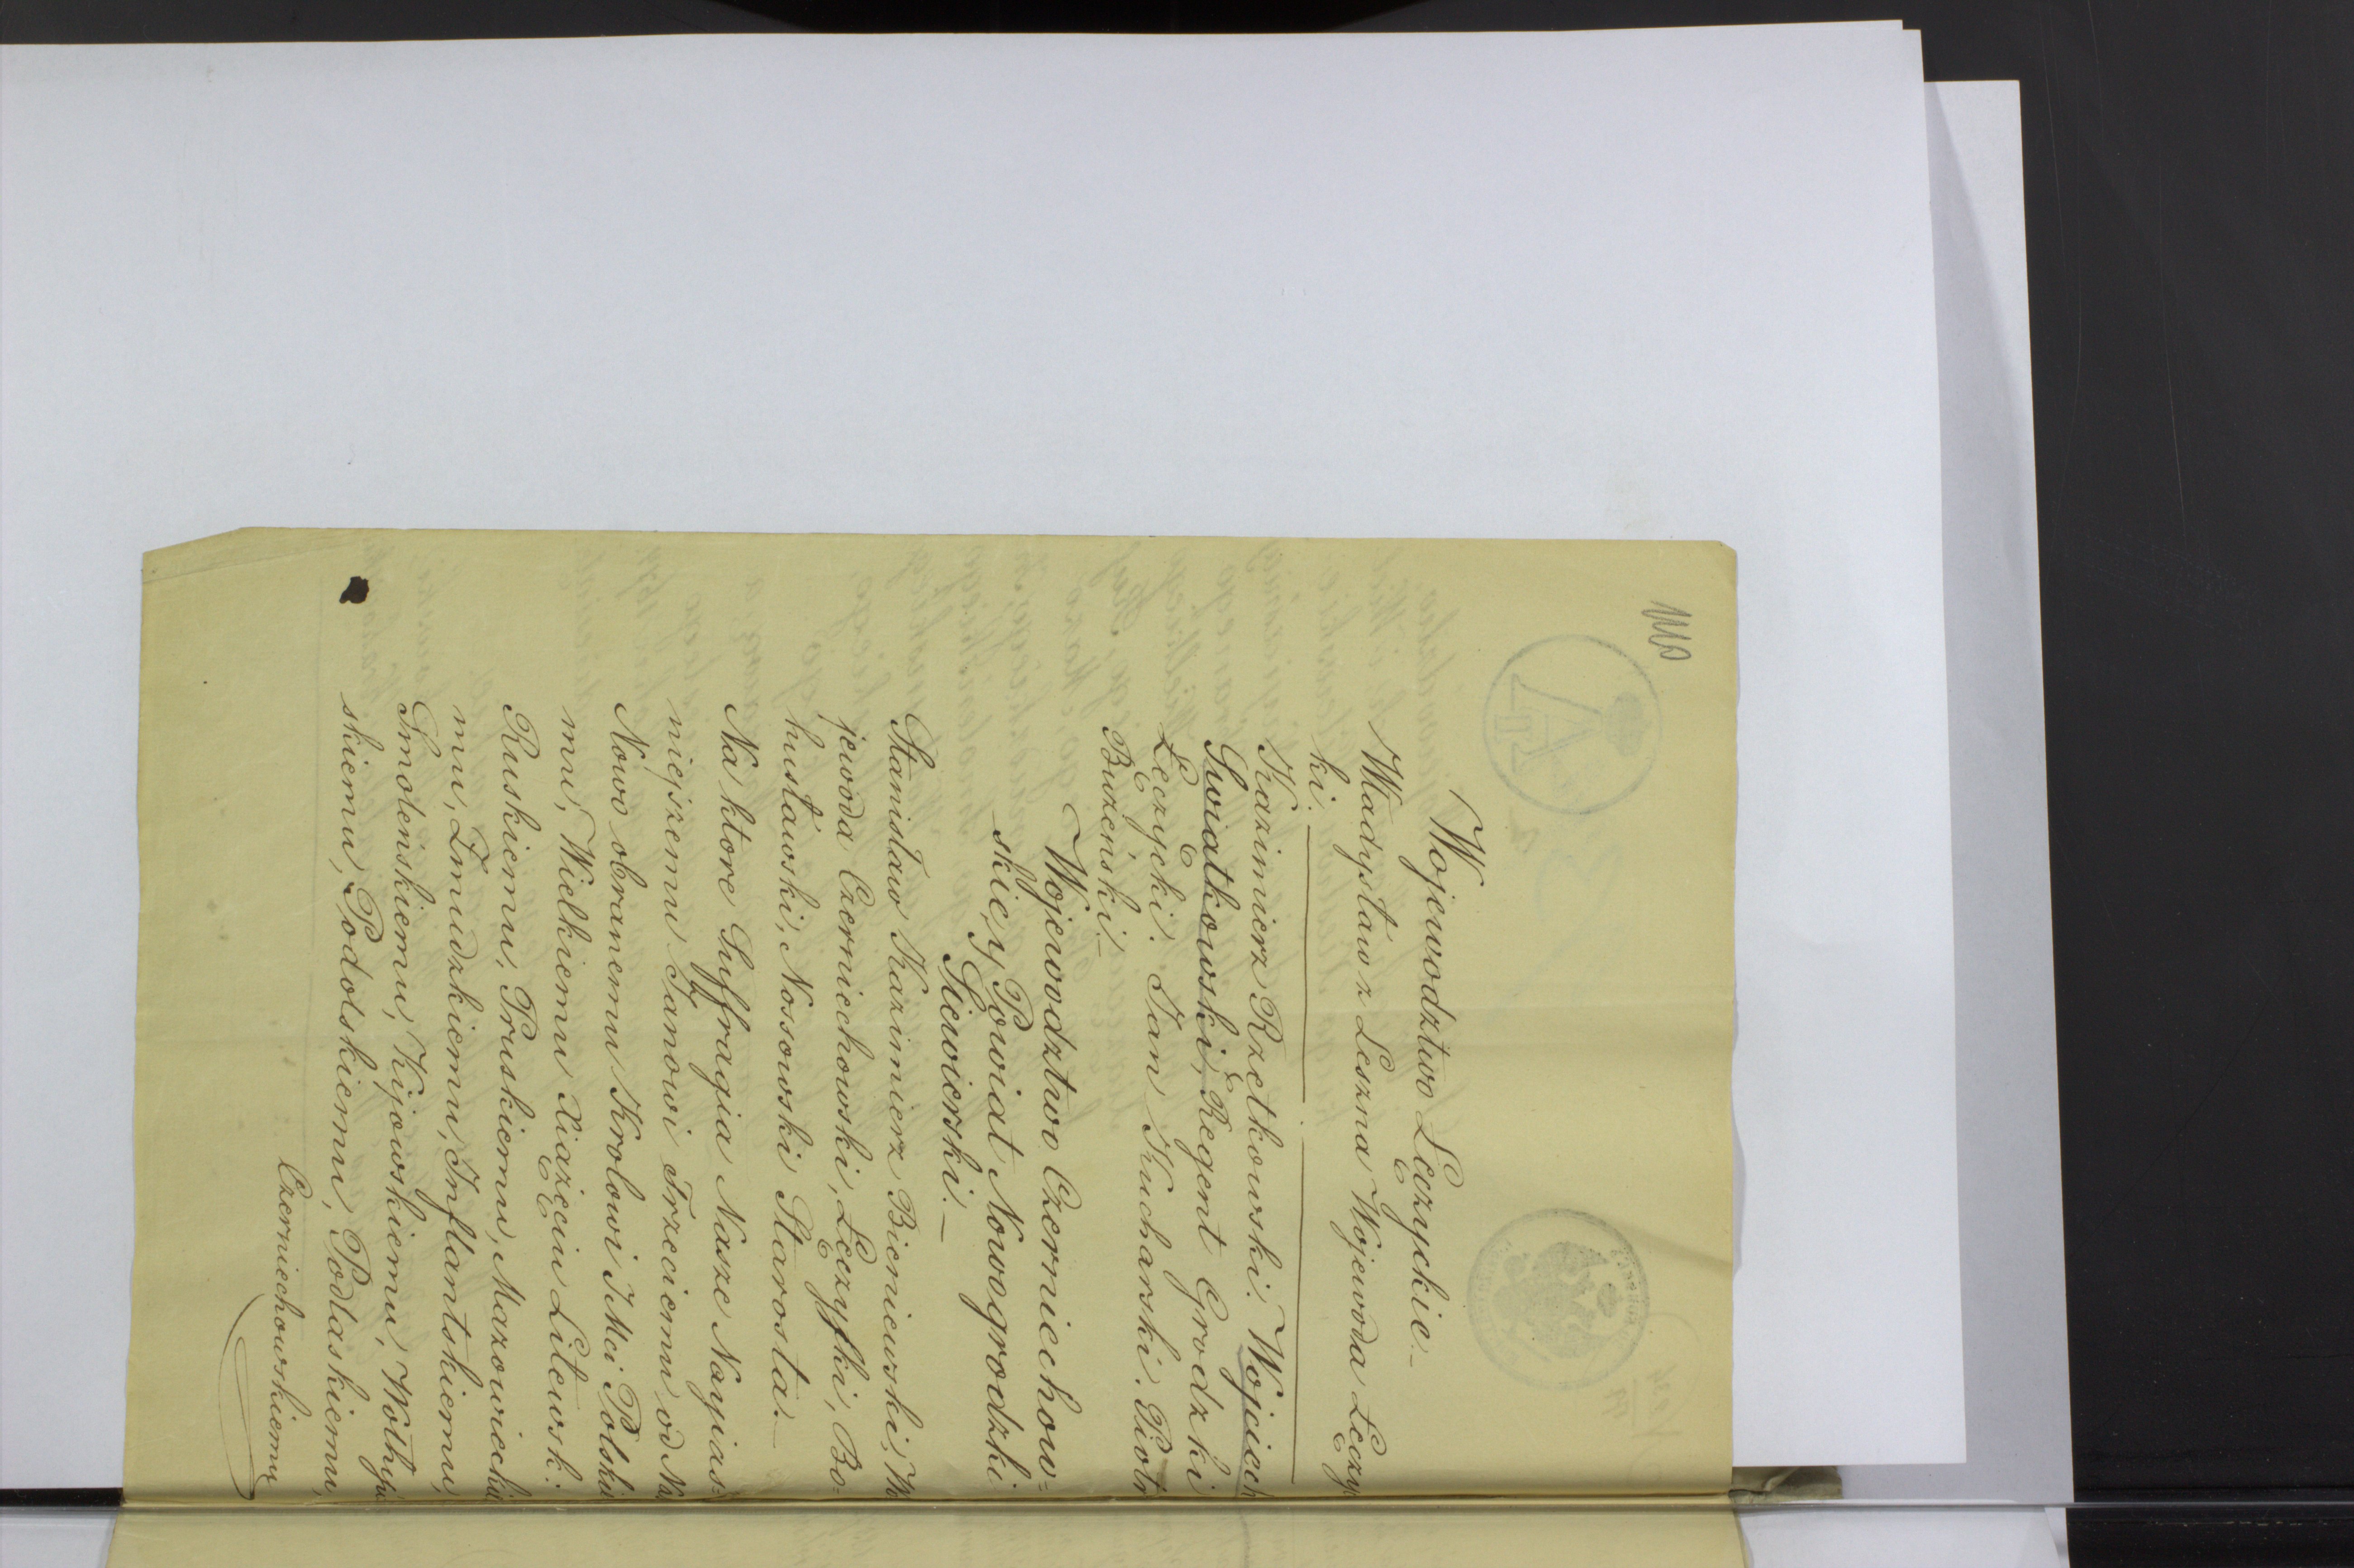 Wojewodztwo Łęczyckie.
Władysław z Leszna Wojewoda Łęczy
ki.
Kazimierz Rzetkowski. Wojciech
Swiatkowski, Regent Grodzki
Łęczycki. Jan Kucharski. Piotr
Buzeński.
Wojewodztwo Czerniechow=
skie, y Powiat Nowogrodzki
Siewierski.
Stanisław Kazimierz Bieniewski, Wo
jewoda Czerniechowski, Łęczyski, Bo=
husławski, Nossowski Starosta.
Na ktore Suffragia Nasze Nayias=
nieyszemu Janowi Trzeciemu, od Na
Nowo obranemu Krolowi JMci Polski
mu, Wielkiemu Xiążęciu Litewsk:
Ruskiemu, Pruskiemu, Mazowiecki
mu, Żmudzkiemu, Inflantskiemu,
Smoleńskiemu, Kijowskiemu, Wołhyń
skiemu, Podolskiemu, Podlaskiemu,
Czerniechowskiemu